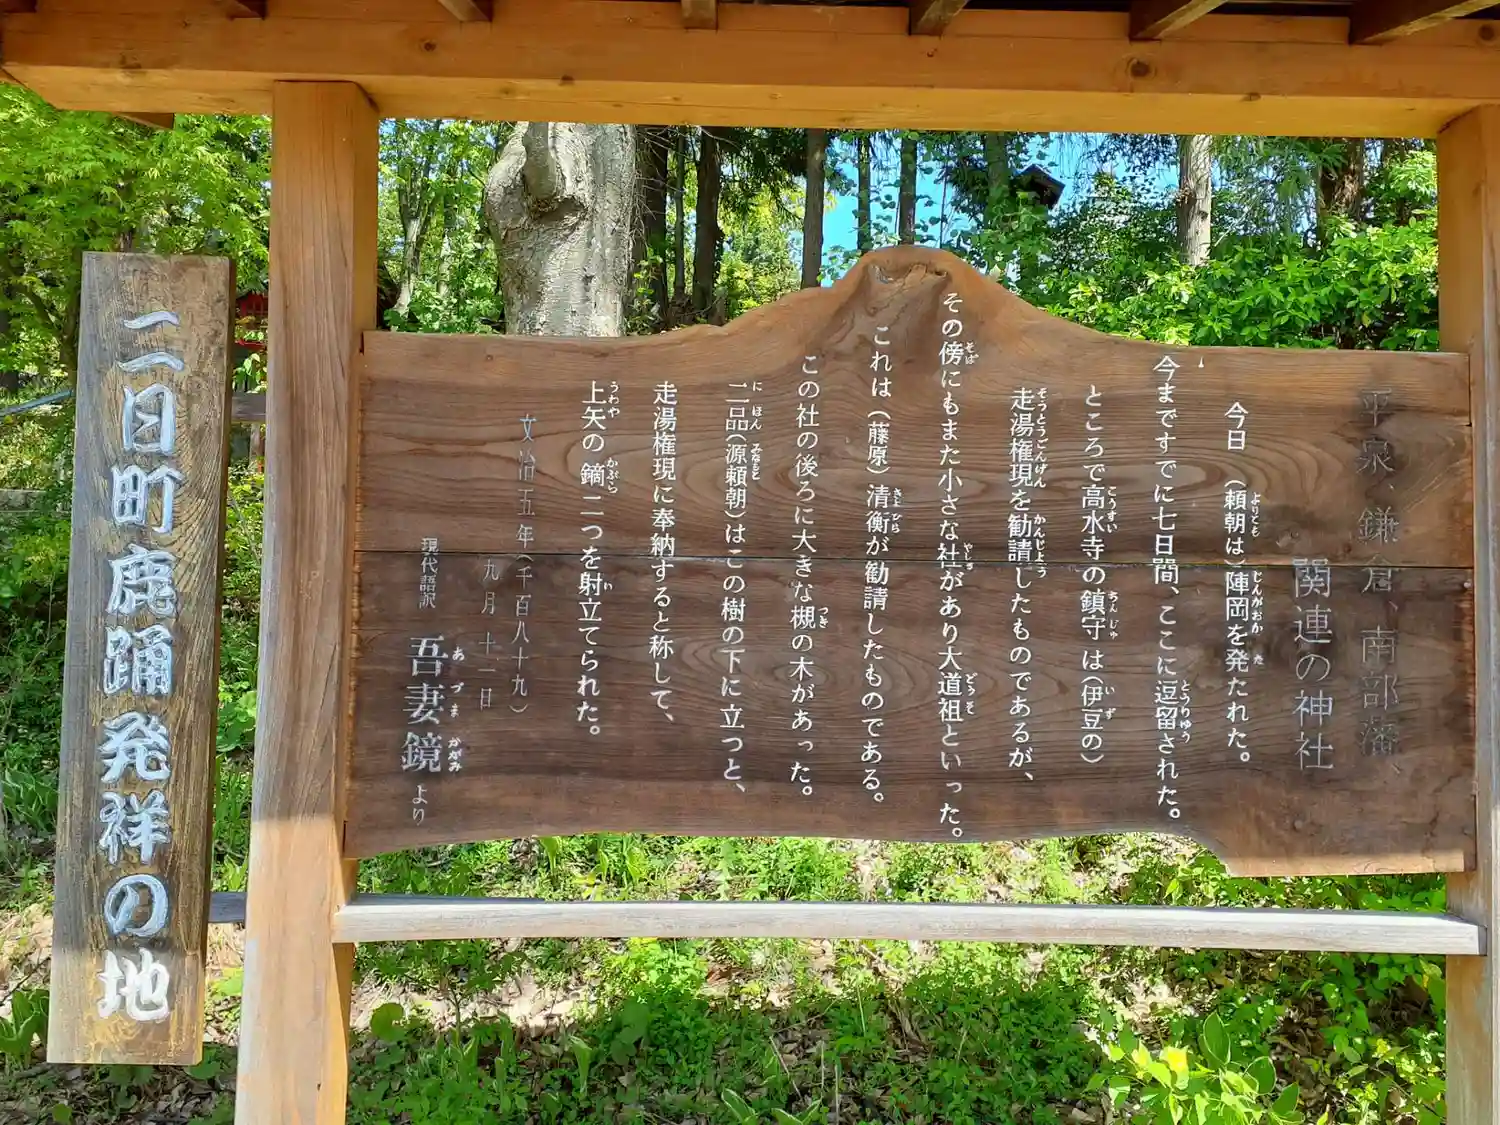 平泉、鎌倉、南部藩、
関連の神社
今日（頼朝は）陣岡を発たれた。
今まですでに七日間、ここに逗留された。
ところで高水寺の鎮守は（伊豆の）
走湯権現を勧請したものであるが、
その傍にもまた小さな社があり大道祖といった。
これは（藤原）清衡が勧請したものである。
この社の後ろに大きな槻の木があった。
二品（源頼朝）はこの樹の下に立つと、
走湯権現に奉納すると称して、
上矢の鏑二つを射立てられた。
文治五年（千百八十九）
九月十一日
現代語訳 吾妻鏡より
二日町鹿踊発祥の地